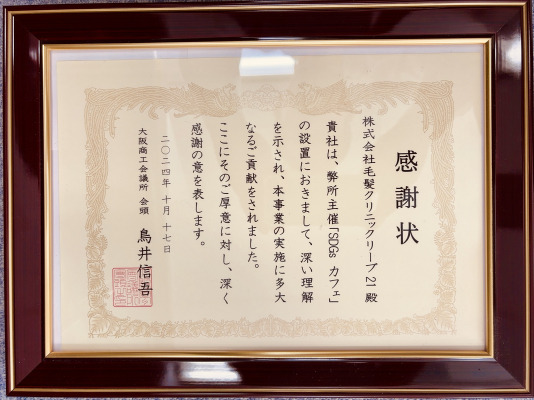 感謝状
株式会社毛髪クリニックリーブ21 殿
貴社は、弊所主催「SDGs カフェ」
の設置におきまして、深い理解
を示され、本事業の実施に多大
なるご貢献をされました。
ここにそのご厚意に対し、深く
感謝の意を表します。
二〇二四年 十月 十七日
大阪商工会議所 会頭 鳥井信吾